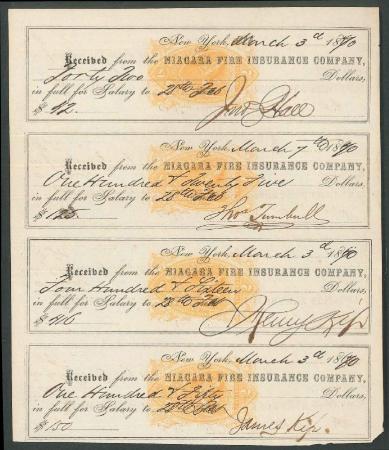 New York, March 3d 1870
Received from the NIAGARA FIRE INSURANCE COMPANY,
Forty Two Dollars,
in full for Salary to 28th Feb
$ 42. Jno Hall
New York, March 7th 1870
Received from the NIAGARA FIRE INSURANCE COMPANY,
One Hundred & Twenty Five Dollars,
in full for Salary to 28th Feb
$ 125 Thos Turnbull
New York, March 3d 1870
Received from the NIAGARA FIRE INSURANCE COMPANY,
Four Hundred & Sixteen Dollars,
in full for Salary to 28th Feb
$ 416 Henry Kip
New York, March 3d 1870
Received from the NIAGARA FIRE INSURANCE COMPANY,
One Hundred & Fifty Dollars,
in full for Salary to 28th Feb
$ 150 James Kip.